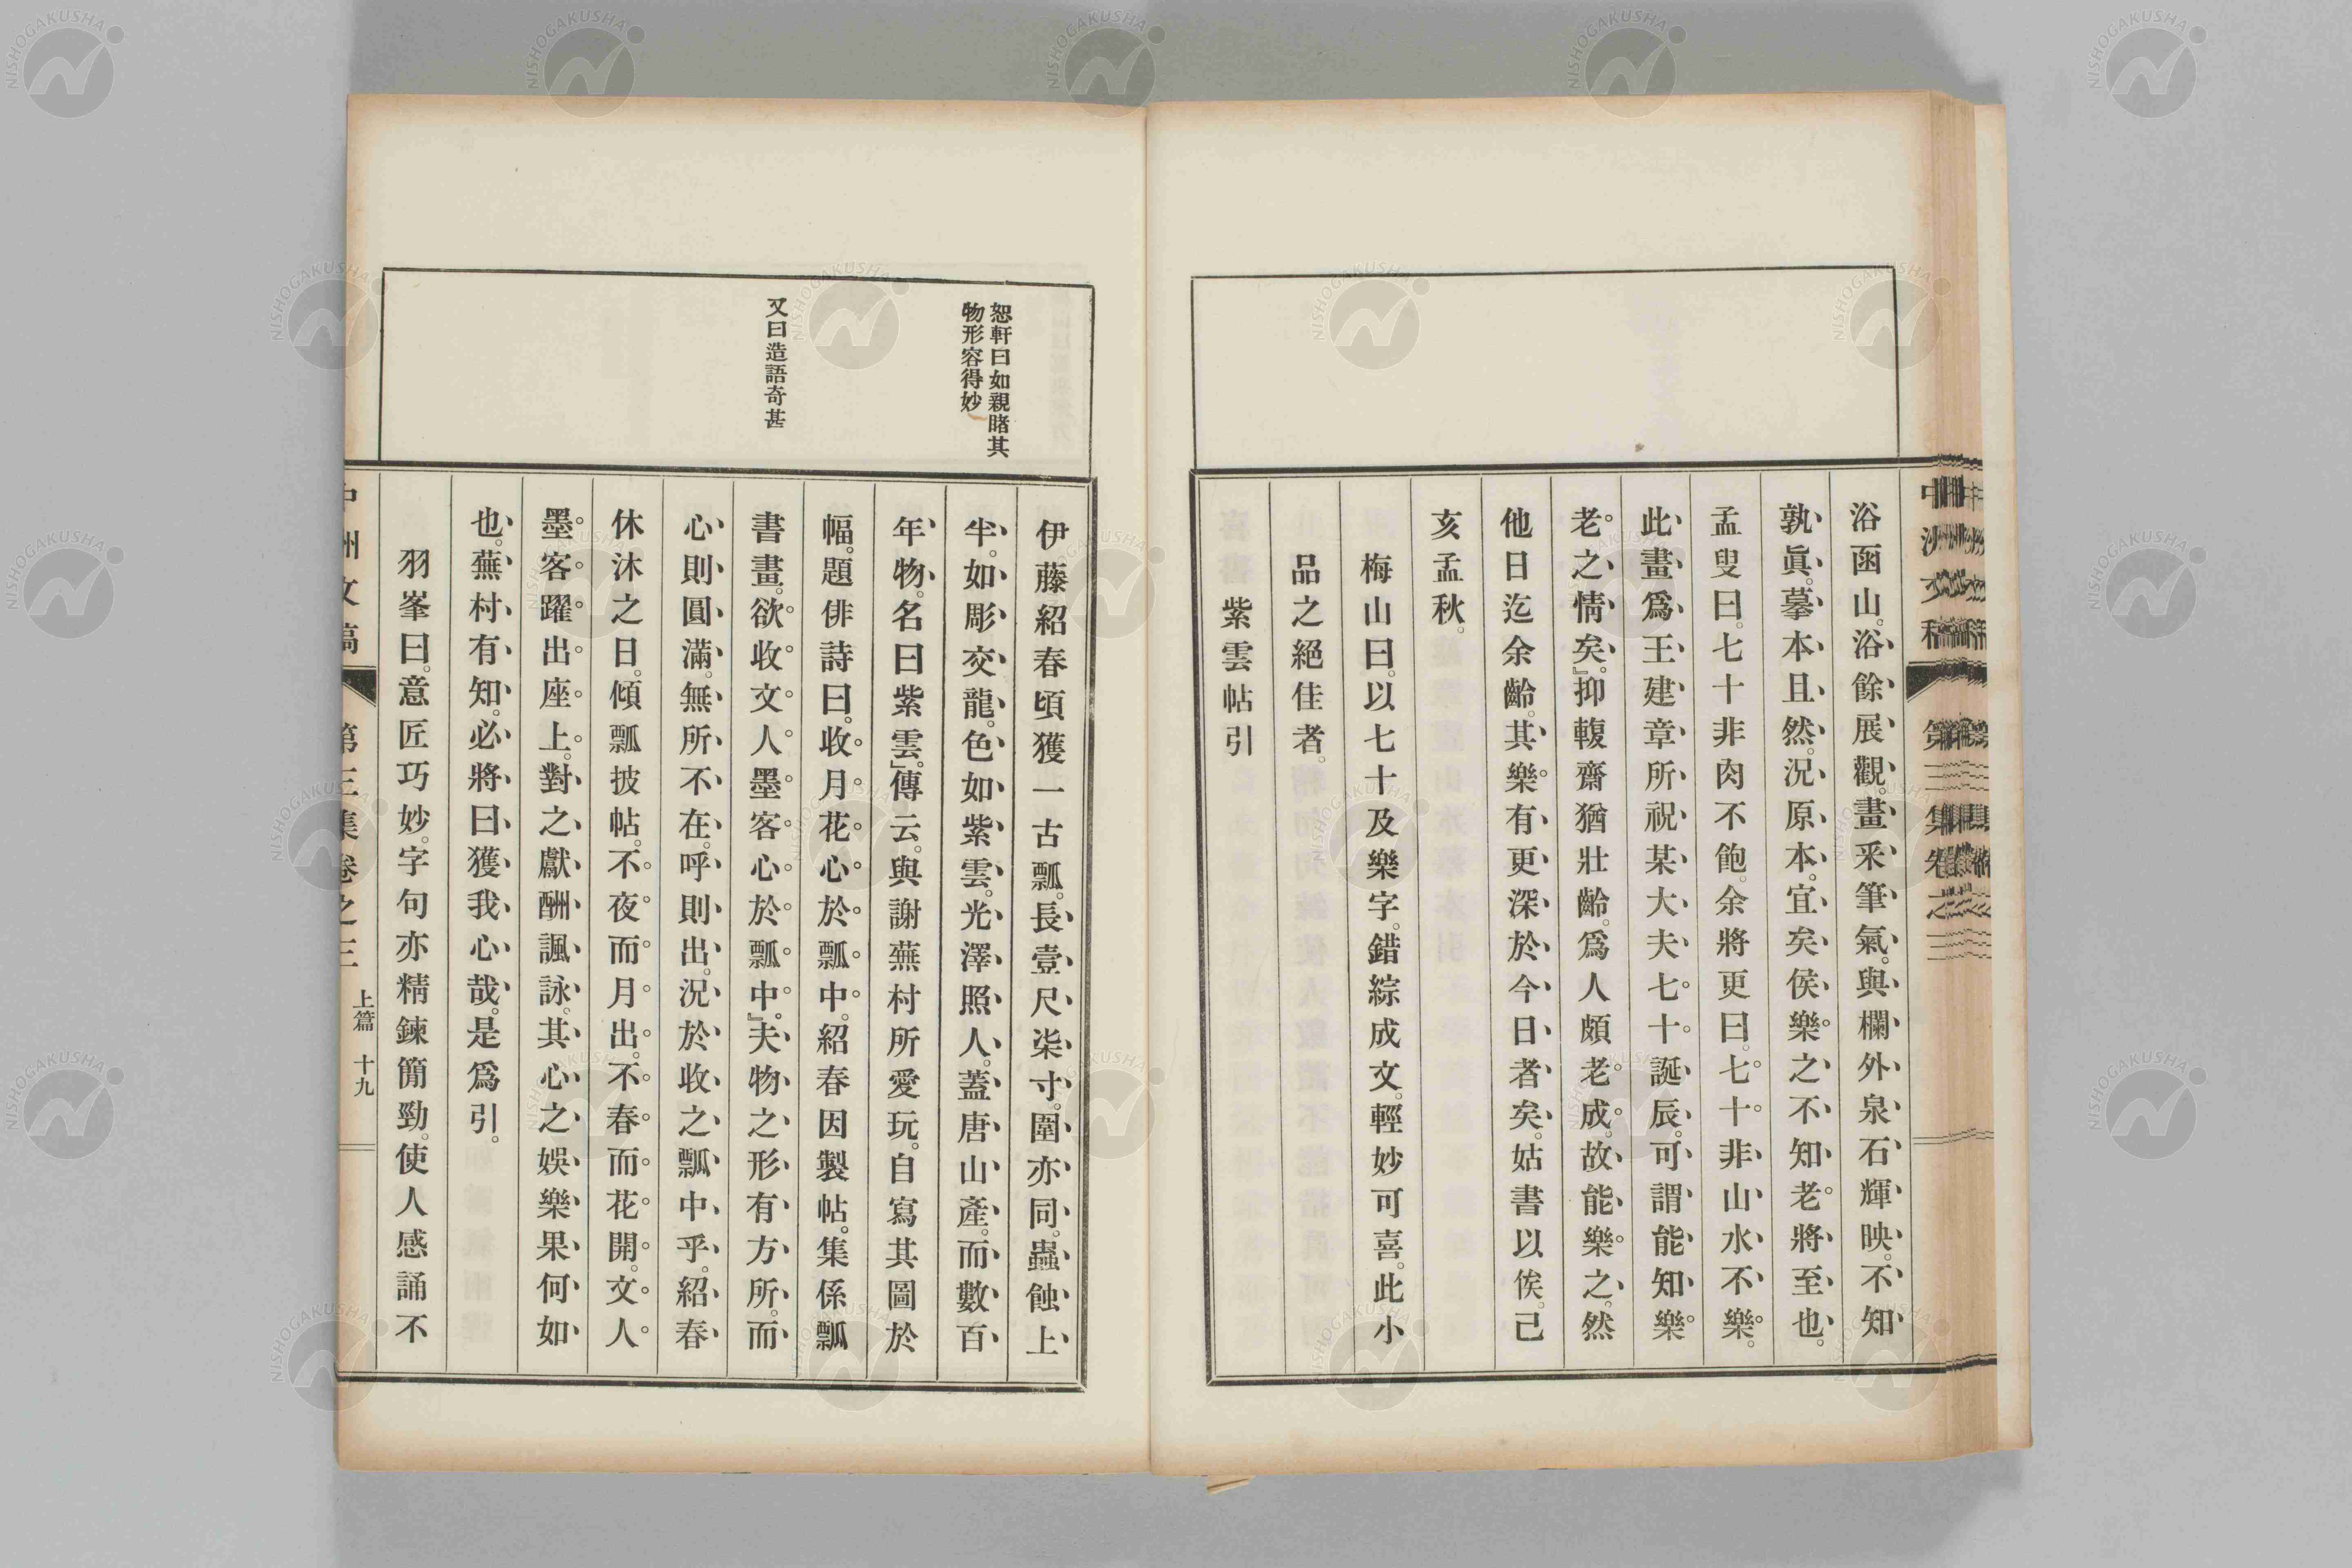 浴函山。浴餘展觀。畫釆筆氣。與欄外泉石輝映。不知
孰眞。摹本且然。況原本。宜矣侯樂之不知老將至也。
孟叟曰。七十非肉不飽。余將更曰。七十非山水不樂。
此畫爲王建章所祝某大夫七十誕辰。可謂能知樂
老之情矣。』抑輹齋猶壯齡。爲人頗老成。故能樂之。然
他日迄余齡。其樂有更深於今日者矣。姑書以俟。己
亥孟秋。
梅山曰。以七十及樂字。錯綜成文。輕妙可喜。此小
品之絕佳者。
紫雲帖引
恕軒曰如親睹其
物形容得妙
又曰造語奇甚
伊藤紹春頃獲一古瓢。長壹尺柒寸。圍亦同。蟲蝕上
半。如彫交龍。色如紫雲。光澤照人。蓋唐山產。而數百
年物。名曰紫雲。』傳云。與謝蕪村所愛玩。自寫其圖於
幅。題俳詩曰。收月花心於瓢中。紹春因製帖。集係瓢
書畫。欲收文人墨客心於瓢中。』夫物之形有方所。而
心則圓滿。無所不在。呼則出。況於收之瓢中乎。紹春
休沐之日。傾瓢披帖。不夜而月出。不春而花開。文人
墨客躍出座上。對之獻酬諷詠。其心之娛樂果何如
也。蕪村有知。必將曰。獲我心哉。是爲引。
羽峯曰。意匠巧妙。字句亦精鍊簡勁。使人感誦不
中洲文稿 第三集卷之三 上篇 十九